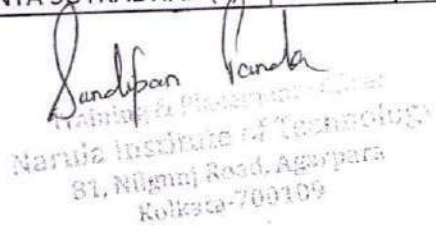 Sandipan Panda
Training & Placement
Narula Institute of Technology
81, Nilgunj Road, Agarpara
Kolkata-700109